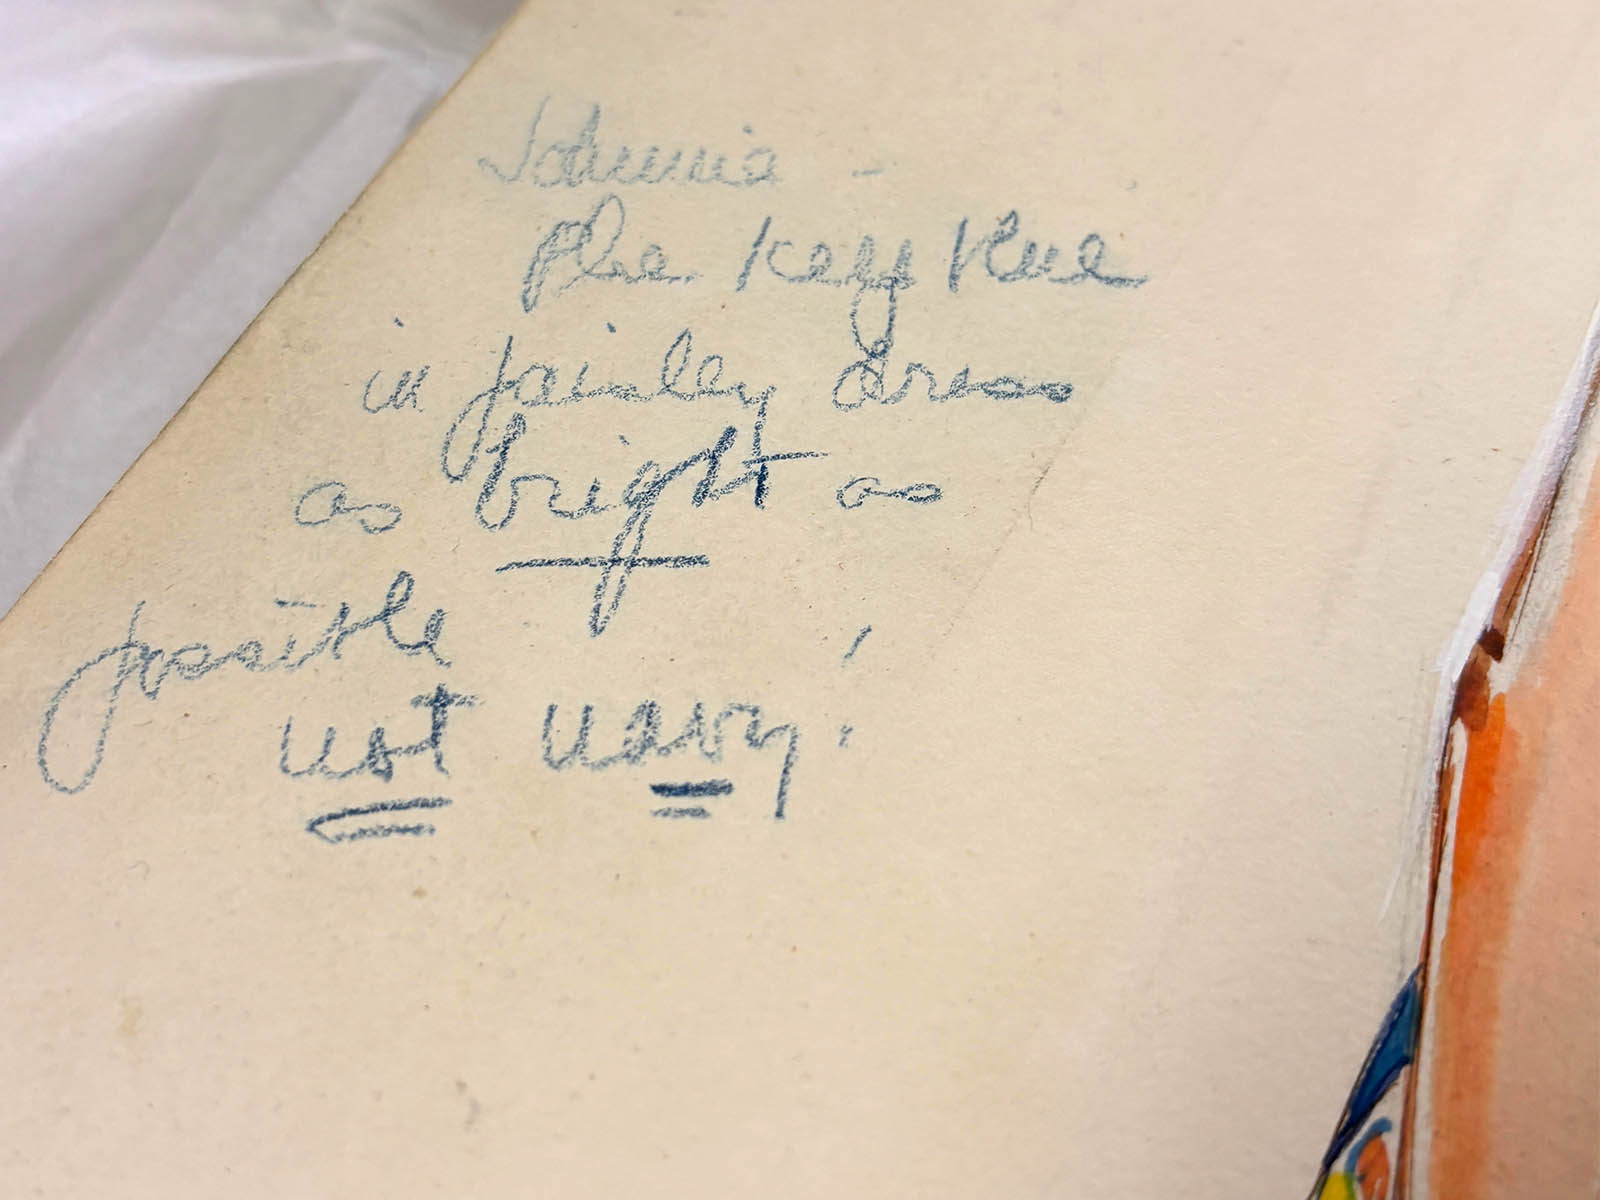 Johnnie -
Please keep blue
in paisley dress
as bright as
possible
not navy!